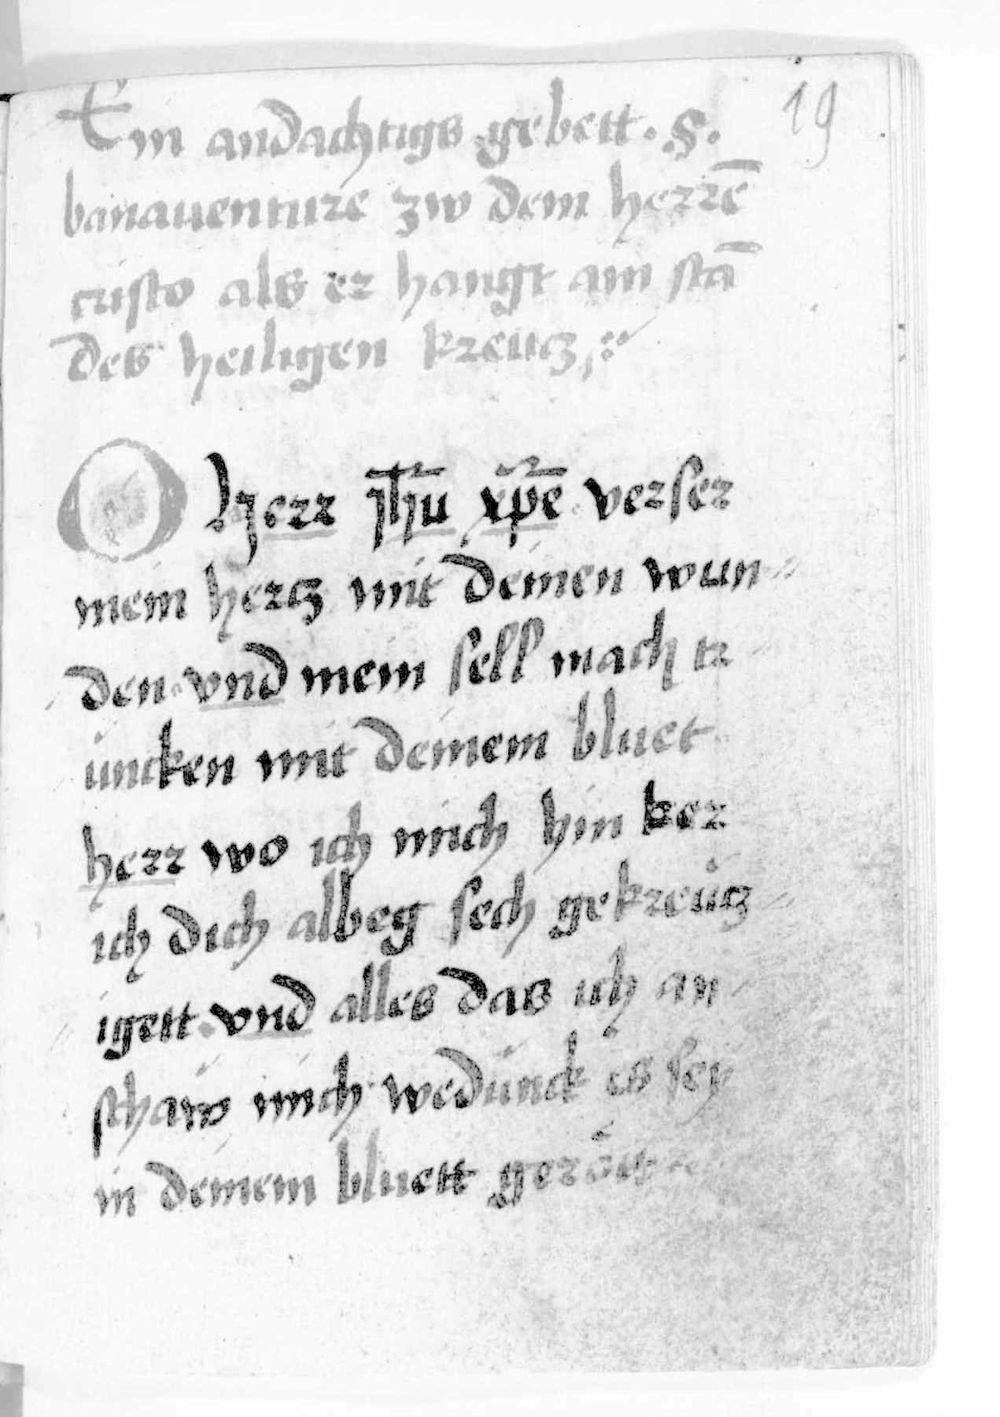 19
Ein andachtigs gebett. S.
banauenture zw dem herrē
cristo als er hangt am stā
des heiligen kreutz
O Herr jhū xpē verser
mein hertz mit deinen wun
den vnd mein sell mach tr
üncken mit deinem bluet
herr wo ich mich hin ker
ich dich albeg sech gekreütz
igett vnd alles das ich an
schaw mich wedünck es sey
in deinem bluett